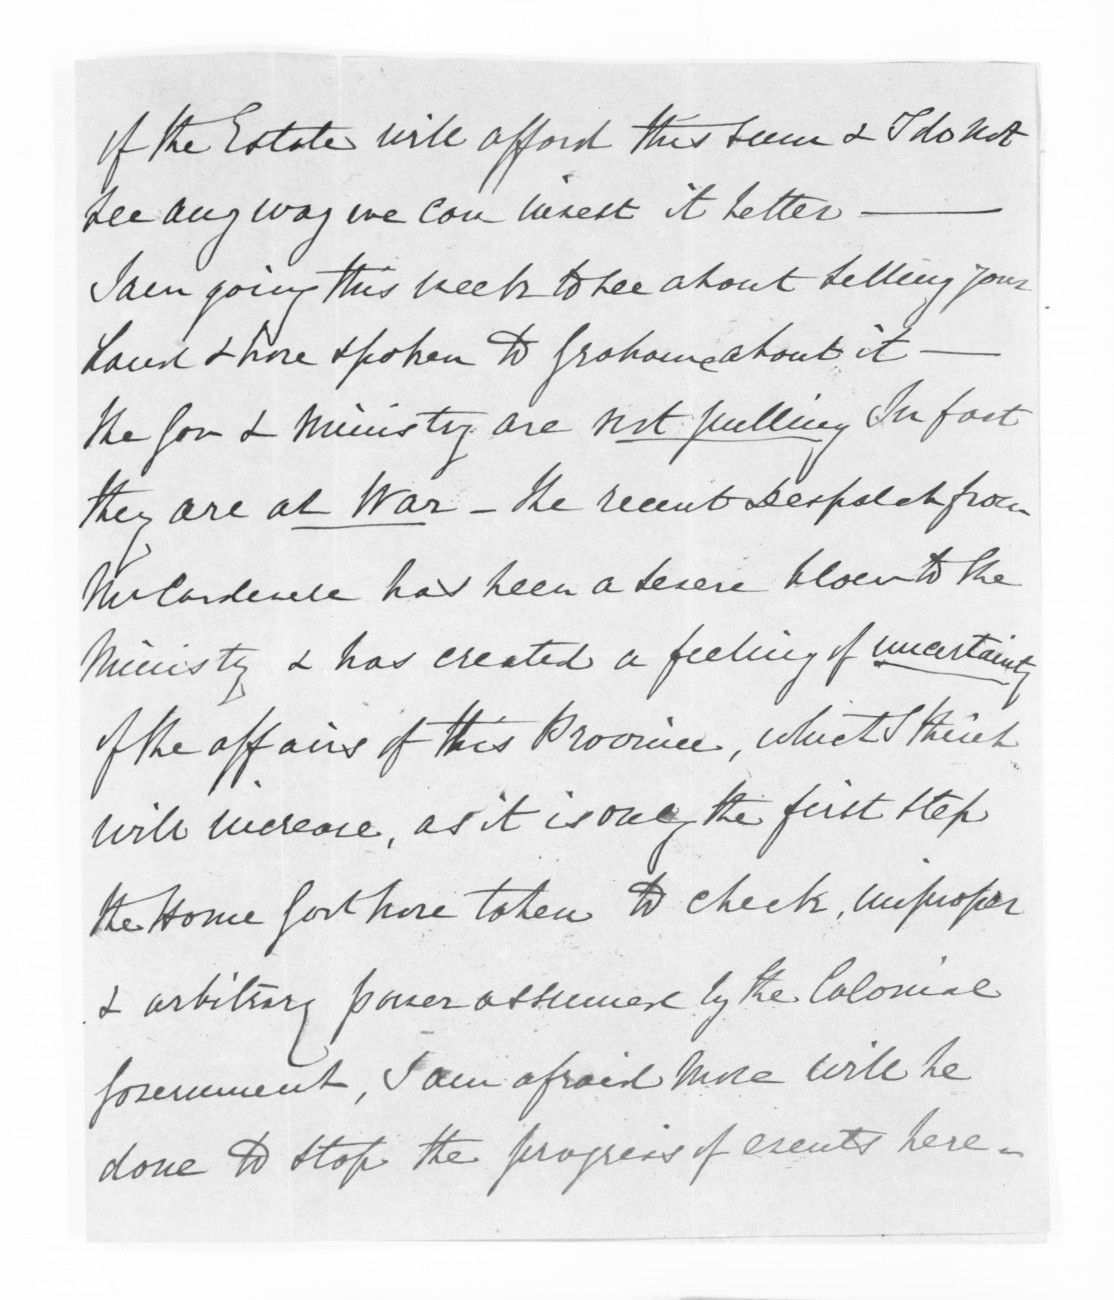 of the Estate will afford this sum & I do not
see any way we can invest it better —
I am going this week to see about selling your
Land & have spoken to Grahame about it —
the Gov & Ministry are not pulling In fact
they are at War - the recent despatch from
Mr Cardwell has been a severe blow to the
Ministry & has created a feeling of uncertainty
of the affairs of this Province, which I think
will increase, as it is only the first step
the Home Govt have taken to check, improper
& arbitrary power assumed by the Colonial
Government, I am afraid more will be
done to stop the progress of events here -